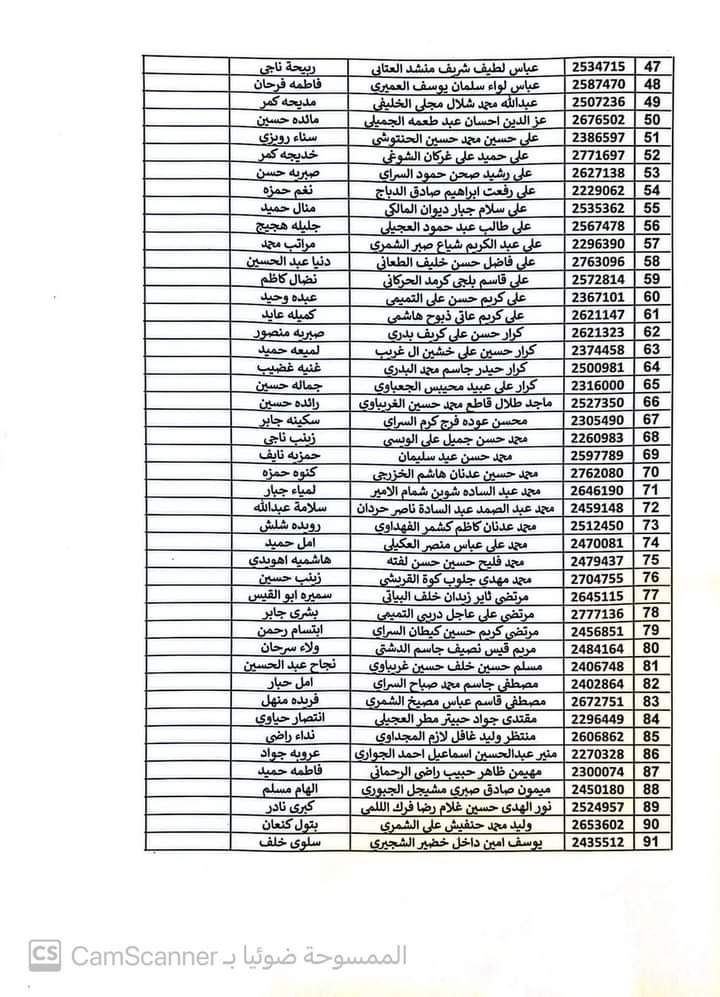 47 2534715 عباس لطيف شريف منشد العتابي ربيحة ناجي
48 2587470 عباس لواء سلمان يوسف العميري فاطمه فرحان
49 2507236 عبدالله محمد شلال مجلي الخليفي مديحه كمر
50 2676502 عز الدين احسان عبد طعمه الجميلي مائده حسين
51 2386597 علي حسين محمد حسين الحنتوشي سناء رويزي
52 2771697 علي حميد علي غركان الشوغي خديجه كمر
53 2627138 علي رشيد صحن حمود السراي صبريه حسن
54 2229062 علي رفعت ابراهيم صادق الدباج نغم حمزه
55 2535362 علي سلام جبار ديوان المالكي منال حميد
56 2567478 علي طالب عبد حمود العجيلي جليله هجيج
57 2296390 علي عبد الكريم شياع صبر الشمري مراتب محمد
58 2763096 علي فاضل حسن خليف الطعاني دنيا عبد الحسين
59 2572814 علي قاسم بلجي كرمد الحركاني نضال كاظم
60 2367101 علي كريم حسن علي التميمي عبده وحيد
61 2621147 علي كريم عاتي ذبوح هاشمي كميله عايد
62 2621323 كرار حسن علي كريف بدري صبريه منصور
63 2374458 كرار حسين علي خشين ال غريب لميعه حميد
64 2500981 كرار حيدر جاسم محمد البدري غنيه غضيب
65 2316000 كرار علي عبيد محيبس الجعباوي جماله حسين
66 2527350 ماجد طلال قاطع محمد حسين الغريباوي رائده حسين
67 2305490 محسن عوده فرج كرم السراي سكينه جابر
68 2260983 محمد حسن جميل علي الويسي زينب ناجي
69 2597789 محمد حسن عبد سليمان حمزيه نايف
70 2762080 محمد حسين عدنان هاشم الخزرجي كنوه حمزه
71 2646190 محمد عبد الساده شوين شمام الامير لمياء جبار
72 2459148 محمد عبد الصمد عبد السادة ناصر حردان سلامة عبدالله
73 2512450 محمد عدنان كاظم كشمر الفهداوي رويده شلش
74 2470081 محمد علي عباس منصر العكيلي امل حميد
75 2479437 محمد فليح حسين حسن لفته هاشميه اهويدي
76 2704755 محمد مهدي جلوب كوة القريشي زينب حسين
77 2645115 مرتضى ثاير زيدان خلف البياتي سميره ابو القيس
78 2777136 مرتضى علي عاجل دربي التميمي بشرى جابر
79 2456851 مرتضى كريم حسين كيطان السراي ابتسام رحمن
80 2484164 مريم قيس نصيف جاسم الدشتي ولاء سرحان
81 2406748 مسلم حسين خلف حسين غريباوي نجاح عبد الحسين
82 2402864 مصطفى جاسم محمد صباح السراي امل حبار
83 2672751 مصطفى قاسم عباس مصيخ الشمري فريده منهل
84 2296449 مقتدى جواد حبيتر مطر العجيلي انتصار حياوي
85 2606862 منتظر وليد غافل لازم المجداوي نداء راضي
86 2270328 منير عبدالحسين اسماعيل احمد الجواري عروبه جواد
87 2300074 مهيمن ظاهر حبيب راضي الرحماني فاطمه حميد
88 2450180 ميمون صادق صبري مشيجل الجبوري الهام مسلم
89 2524957 نور الهدى حسين غلام رضا فرك اللامي كبرى نادر
90 2653602 وليد محمد حنفيش علي الشمري بتول كنعان
91 2435512 يوسف امين داخل خضير الشجيري سلوى خلف
CS CamScanner الممسوحة ضوئيا بـ